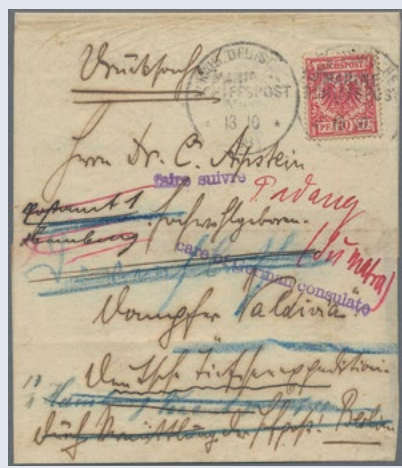 Drucksache
KAIS. DEUTSCHE
MARINE
SCHIFFSPOST
13 10
REICHSPOST
10 PFENNIG 10
Herrn Dr. C. Apstein
faire suivre
Padang
Postamt 1
Hochwohlgeboren.
Hamburg
(Sumatra)
care of German consulate
Dampfer "Valdivia"
Deutsche Tiefseeexpedition.
Hamburg
durch Vermittlung der Hofpost: Berlin